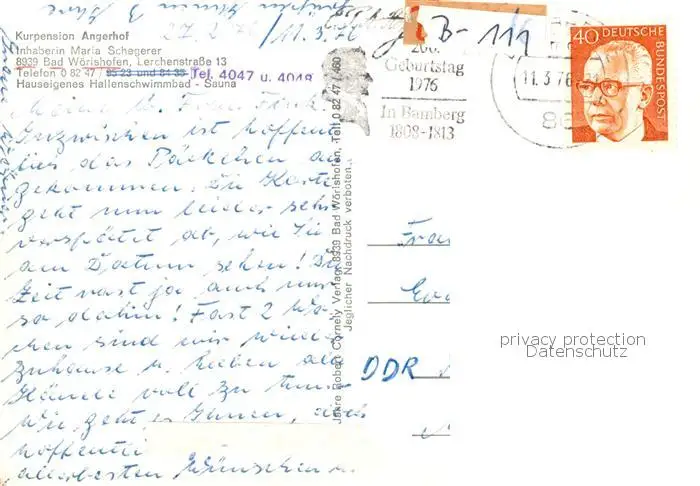 27.2.76 / 11.3.76
Kurpension Angerhof
Inhaberin Maria Schegerer
8939 Bad Wörishofen, Lerchenstraße 13
Telefon 0 82 47 / 95 23 und 84 33 Tel. 4047 u. 4048
Hauseigenes Hallenschwimmbad - Sauna
Meine lb. Frau
Inzwischen ist hoffent
lich das Päckchen an
gekommen. Die Karte
geht nun leider sehr
verspätet ab, wie Sie
am Datum sehen! Die
Zeit rast ja auch nur
so dahin! Fast 2 Wo
chen sind wir wieder
zuhause u. haben alle
Hände voll zu tun.
Wie geht es Ihnen,
hoffentl.
allerbesten Wünschen u.
Jahre Robert Cornely Verlag, 8939 Bad Wörishofen, Tel. 0 82 47 / 480
Jeglicher Nachdruck verboten
B-111
200.
Geburtstag
1976
In Bamberg
1808-1813
11.3.76
40 DEUTSCHE
BUNDESPOST
Frau
DDR
privacy protection
Datenschutz